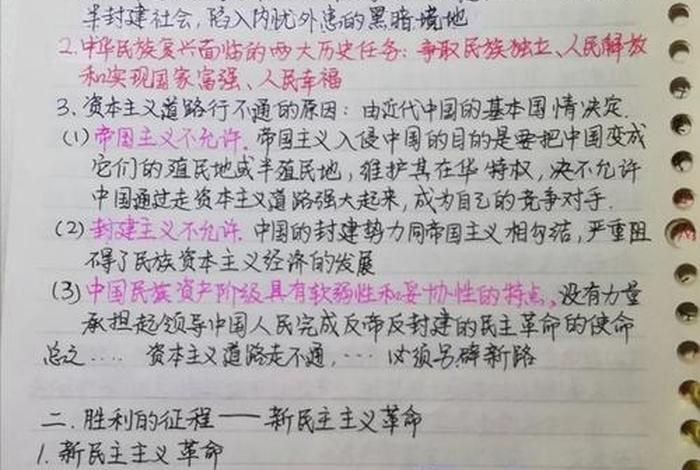 半封建社会,陷入内忧外患的黑暗境地
2.中华民族复兴面临的两大历史任务:争取民族独立、人民解放
和实现国家富强、人民幸福
3、资本主义道路行不通的原因:由近代中国的基本国情决定.
(1)帝国主义不允许.帝国主义入侵中国的目的是要把中国变成
它们的殖民地或半殖民地,维护其在华特权,决不允许
中国通过走资本主义道路强大起来,成为自己的竞争对手.
(2)封建主义不允许.中国的封建势力同帝国主义相勾结,严重阻
碍了民族资本主义经济的发展
(3)中国民族资产阶级具有软弱性和妥协性的特点。没有力量
承担起领导中国人民完成反帝反封建的民主革命的使命
总之.... 资本主义道路走不通,... 必须另辟新路
二.胜利的征程——新民主主义革命
1.新民主主义革命